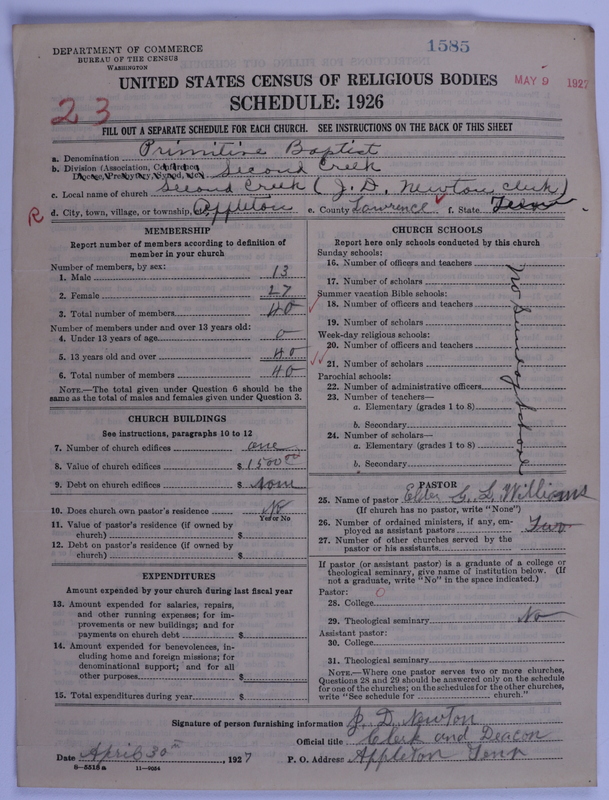 DEPARTMENT OF COMMERCE
BUREAU OF THE CENSUS
WASHINGTON
1585
UNITED STATES CENSUS OF RELIGIOUS BODIES
MAY 9 1927
SCHEDULE: 1926
23
FILL OUT A SEPARATE SCHEDULE FOR EACH CHURCH. SEE INSTRUCTIONS ON THE BACK OF THIS SHEET
a. Denomination Primitive Baptist
b. Division (Association, Conference, Diocese, Presbytery, Synod, etc.) Second Creek
c. Local name of church Second Creek (J. D. Newton, clerk)
R d. City, town, village, or township, etc. Appleton e. County Lawrence f. State Tenn
MEMBERSHIP
Report number of members according to definition of
member in your church
Number of members, by sex:
1. Male 13
2. Female 27
3. Total number of members 40
Number of members under and over 13 years old:
4. Under 13 years of age 0
5. 13 years old and over 40
6. Total number of members 40
NOTE.—The total given under Question 6 should be the
same as the total of males and females given under Question 3.
CHURCH BUILDINGS
See instructions, paragraphs 10 to 12
7. Number of church edifices one
8. Value of church edifices $ 1500 00
9. Debt on church edifices $ None
10. Does church own pastor's residence No
Yes or No
11. Value of pastor's residence (if owned by
church) $
12. Debt on pastor's residence (if owned by
church) $
EXPENDITURES
Amount expended by your church during last fiscal year
13. Amount expended for salaries, repairs,
and other running expenses; for im-
provements or new buildings; and for
payments on church debt $
14. Amount expended for benevolences, in-
cluding home and foreign missions; for
denominational support; and for all
other purposes $
15. Total expenditures during year $
CHURCH SCHOOLS
Report here only schools conducted by this church
Sunday schools:
16. Number of officers and teachers
17. Number of scholars
Summer vacation Bible schools:
18. Number of officers and teachers
19. Number of scholars
Week-day religious schools:
20. Number of officers and teachers
21. Number of scholars
Parochial schools:
22. Number of administrative officers
23. Number of teachers—
a. Elementary (grades 1 to 8)
b. Secondary
24. Number of scholars—
a. Elementary (grades 1 to 8)
b. Secondary
No Sunday School
PASTOR
25. Name of pastor Elder G. L. Williams
(If church has no pastor, write "None")
26. Number of ordained ministers, if any, em-
ployed as assistant pastors Two
27. Number of other churches served by the
pastor or his assistants
If pastor (or assistant pastor) is a graduate of a college or
theological seminary, give name of institution below. (If
not a graduate, write "No" in the space indicated.)
Pastor: 0
28. College
29. Theological seminary No
Assistant pastor:
30. College
31. Theological seminary
NOTE.—Where one pastor serves two or more churches,
Questions 28 and 29 should be answered only on the schedule
for one of the churches; on the schedules for the other churches,
write "See schedule for church."
Signature of person furnishing information J. D. Newton
Official title Clerk and Deacon
Date April 30th, 1927 P. O. Address Appleton Tenn
8-5518a 11-9054